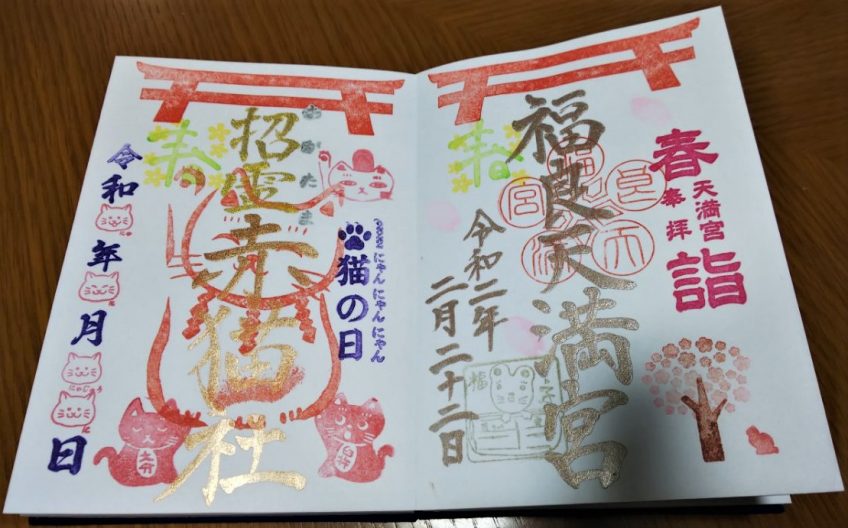 春詣
天満宮
奉拝
福良天満宮
春
令和二年
二月二十二日
福
天
猫の日
にゃんにゃんにゃん
おがたま
招霊赤猫社
春
令和年月日
大分
臼杵